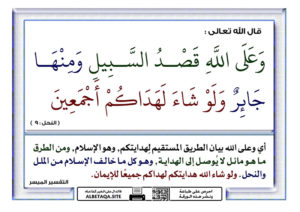 قال الله تعالى :
وَعَلَى اللَّهِ قَصْدُ السَّبِيلِ وَمِنْهَا
جَائِرٌ وَلَوْ شَاءَ لَهَدَاكُمْ أَجْمَعِينَ
( النحل : ٩ )
أي وعلى الله بيان الطريق المستقيم لهدايتكم، وهو الإسلام، ومن الطرق
ما هو مائل لا يُوصل إلى الهداية، وهو كل ما خالف الإسلام من الملل
والنحل. ولو شاء الله هدايتكم لهداكم جميعًا للإيمان.
التفسير الميسر
احرص على طباعة
ونشر هذه الورقة
ALBETAQA.SITE